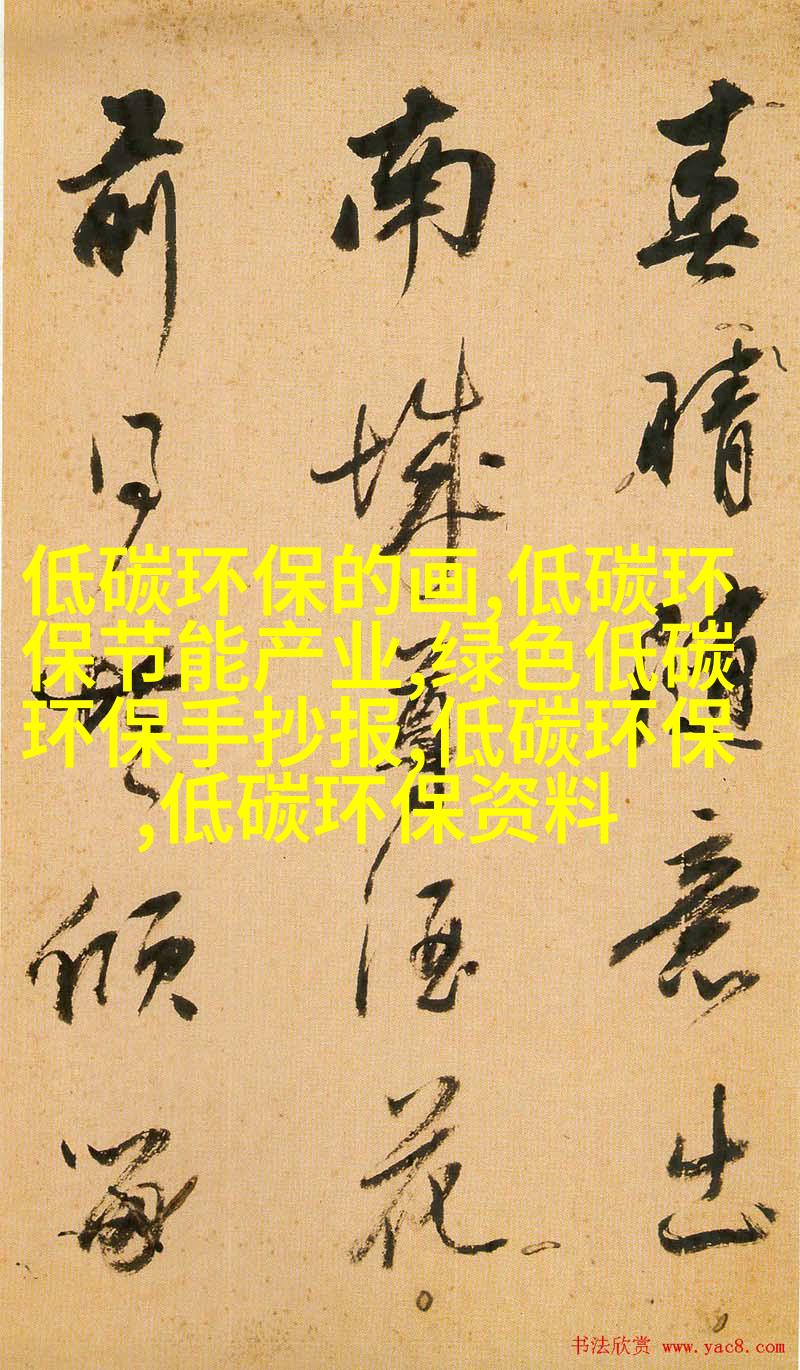 春晴隨意出
南城尊酒花
前共傾
低碳环保的画,低碳环
保节能产业,绿色低碳
环保手抄报,低碳环保
,低碳环保资料
书法欣赏 www.yac8.com